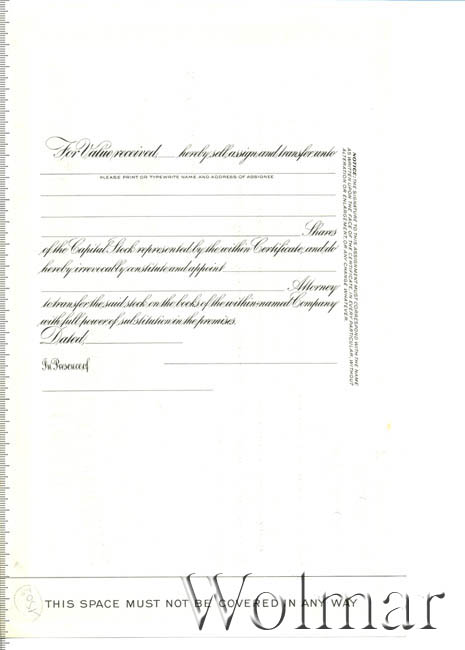 For Value received, hereby sell, assign and transfer unto
PLEASE PRINT OR TYPEWRITE NAME AND ADDRESS OF ASSIGNEE
Shares
of the Capital Stock represented by the within Certificate, and do
hereby irrevocably constitute and appoint
Attorney
to transfer the said stock on the books of the within-named Company
with full power of substitution in the premises.
Dated,
In Presence of
NOTICE: THE SIGNATURE TO THIS ASSIGNMENT MUST CORRESPOND WITH THE NAME
AS WRITTEN UPON THE FACE OF THE CERTIFICATE, IN EVERY PARTICULAR, WITHOUT
ALTERATION OR ENLARGEMENT, OR ANY CHANGE WHATEVER.
THIS SPACE MUST NOT BE COVERED IN ANY WAY
Wolmar